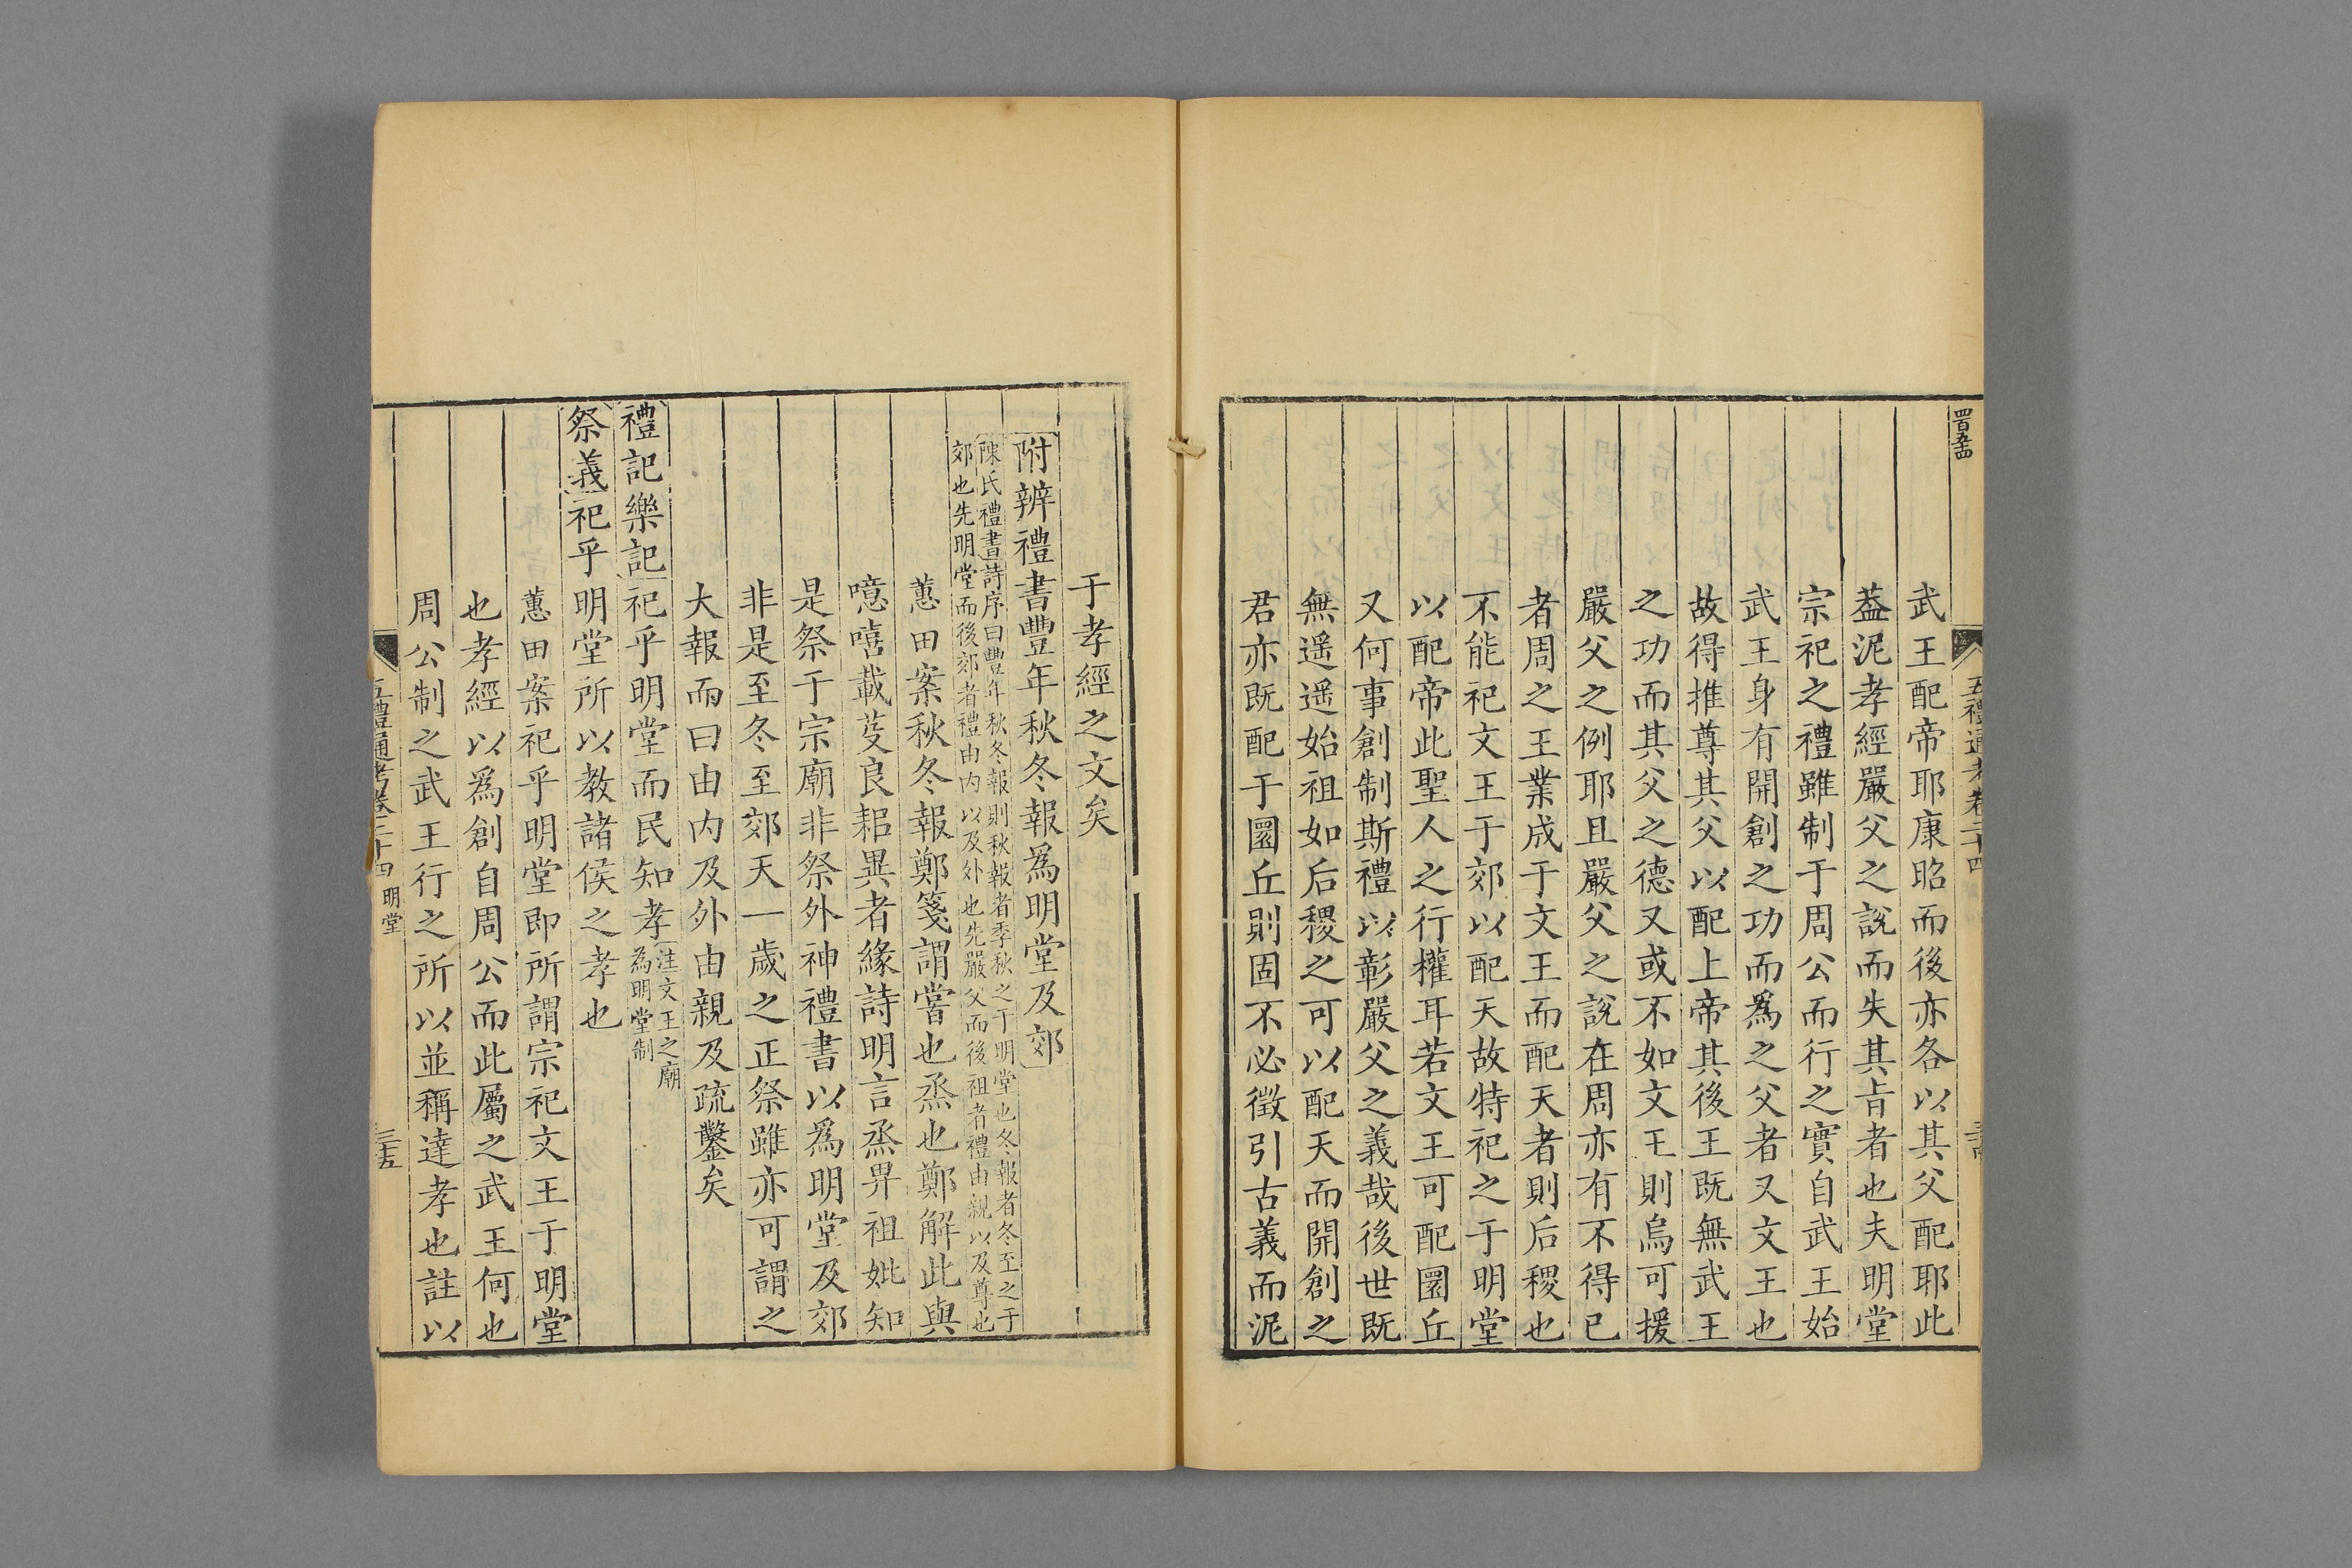 四百五十四
五禮通考卷二十四
武王配帝耶康昭而後亦各以其父配耶此
葢泥孝經嚴父之說而失其㫖者也夫明堂
宗祀之禮雖制于周公而行之實自武王始
武王身有開創之功而爲之父者又文王也
故得推尊其父以配上帝其後王既無武王
之功而其父之德又或不如文王則烏可援
嚴父之例耶且嚴父之說在周亦有不得已
者周之王業成于文王而配天者則后稷也
不能祀文王于郊以配天故特祀之于明堂
以配帝此聖人之行權耳若文王可配圜丘
又何事創制斯禮以彰嚴父之義哉後世既
無遥遥始祖如后稷之可以配天而開創之
君亦既配于圜丘則固不必徵引古義而泥
于孝經之文矣
附辨禮書豐年秋冬報爲明堂及郊
陳氏禮書詩序曰豐年秋冬報則秋報者季秋之于明堂也冬報者冬至之于
郊也先明堂而後郊者禮由内以及外也先嚴父而後祖者禮由親以及尊也
蕙田案秋冬報鄭箋謂嘗也烝也鄭解此與
噫嘻載芟良耜異者緣詩明言烝畀祖妣知
是祭于宗廟非祭外神禮書以爲明堂及郊
非是至冬至郊天一歲之正祭雖亦可謂之
大報而曰由内及外由親及疏鑿矣
禮記樂記祀乎明堂而民知孝注文王之廟
為明堂制
祭義祀乎明堂所以教諸侯之孝也
蕙田案祀乎明堂即所謂宗祀文王于明堂
也孝經以爲創自周公而此屬之武王何也
周公制之武王行之所以並稱達孝也註以
五禮通考卷二十四 明堂
三十五